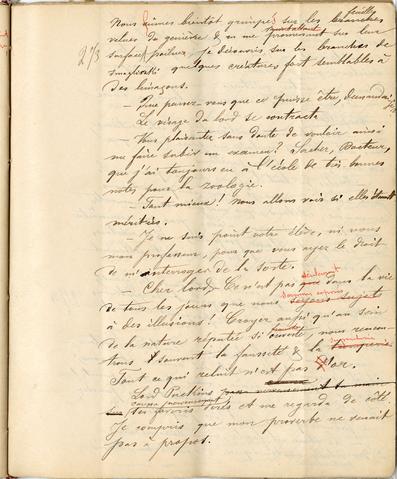 Nous fûmes bientôt grimpés sur les branches feuilles
velues du genièvre & en me promenant sur leur
surface poilue, je découvris sur les branches de
2/3
quelques créatures fort semblables à
des limaçons.
— Que pensez-vous que ce puisse être, demandai-je
Le visage du lord se contracta
— Vous plaisantez sans doute de vouloir ainsi
me faire subir un examen? Sachez, Docteur,
que j'ai toujours eu à l'école de très bonnes
notes pour la zoologie.
— Tant mieux! nous allons voir si elles étaient
méritées.
— Je ne suis point votre élève, ni vous
mon professeur, pour que vous ayez le droit
de m'interroger de la sorte.
seulement
— Cher lord, Ce n'est pas que dans la vie
sommes exposés
de tous les jours que nous soyons sujets
à des illusions! Croyez aussi qu'au sein
de la nature réputée si ouverte, nous rencon-
trons souvent la fausseté & la tromperie
Tout ce qui reluit n'est pas d'or.
Lord Puckins
ses favoris et me regarda de côté
Je compris que mon proverbe ne venait
pas à propos.